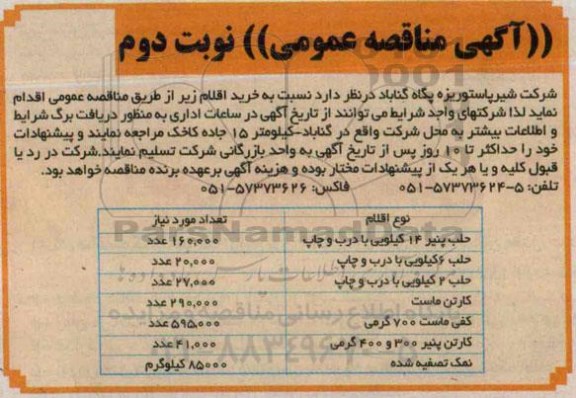 ((آگهی مناقصه عمومی)) نوبت دوم
شرکت شیرپاستوریزه پگاه گناباد درنظر دارد نسبت به خرید اقلام زیر از طریق مناقصه عمومی اقدام
نماید لذا شرکتهای واجد شرایط می توانند از تاریخ آگهی در ساعات اداری به منظور دریافت برگ شرایط
و اطلاعات بیشتر به محل شرکت واقع در گناباد-کیلومتر ۱۵ جاده کاخک مراجعه نمایند و پیشنهادات
خود را حداکثر تا ۱۰ روز پس از تاریخ آگهی به واحد بازرگانی شرکت تسلیم نمایند.شرکت در رد یا
قبول کلیه و یا هر یک از پیشنهادات مختار بوده و هزینه آگهی برعهده برنده مناقصه خواهد بود.
تلفن: ۵-۵۷۳۷۳۶۲۴-۰۵۱ فاکس: ۵۷۳۷۳۶۲۶-۰۵۱
نوع اقلام تعداد مورد نیاز
حلب پنیر ۱۴ کیلویی با درب و چاپ ۱۶۰,۰۰۰ عدد
حلب ۶کیلویی با درب و چاپ ۲۰,۰۰۰ عدد
حلب ۲ کیلویی با درب و چاپ ۲۷,۰۰۰ عدد
کارتن ماست ۲۹۰,۰۰۰ عدد
کفی ماست ۷۰۰ گرمی ۵۹۵,۰۰۰ عدد
کارتن پنیر ۳۰۰ و ۴۰۰ گرمی ۴۱,۰۰۰ عدد
نمک تصفیه شده ۸۵۰۰۰ کیلوگرم
ParsNamadData